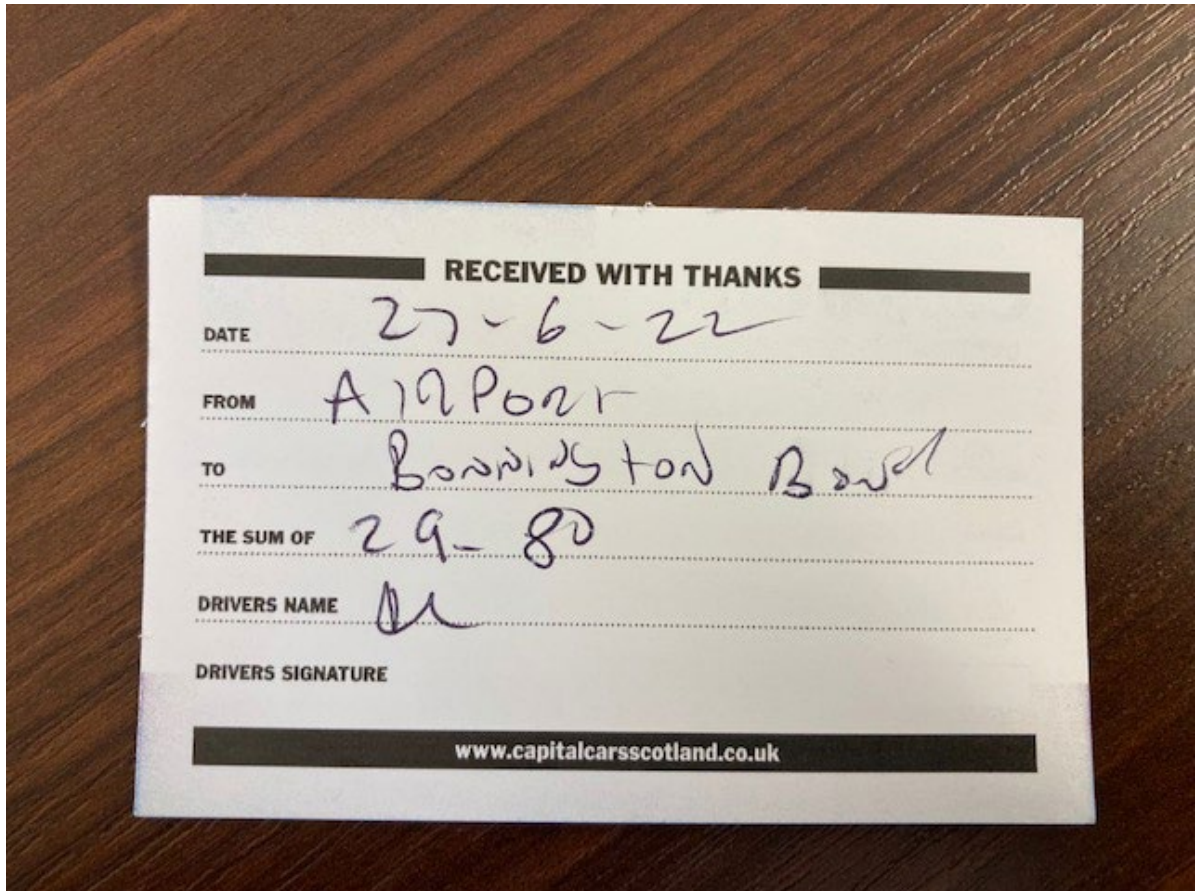 RECEIVED WITH THANKS
DATE 27-6-22
FROM AIRPORT
TO BONNINGTON BOND
THE SUM OF 29-80
DRIVERS NAME
DRIVERS SIGNATURE
www.capitalcarsscotland.co.uk